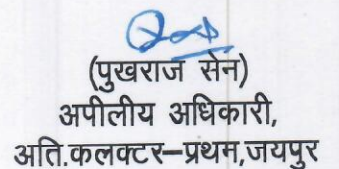 (पुखराज सेन)
अपीलीय अधिकारी,
अति.कलक्टर–प्रथम,जयपुर